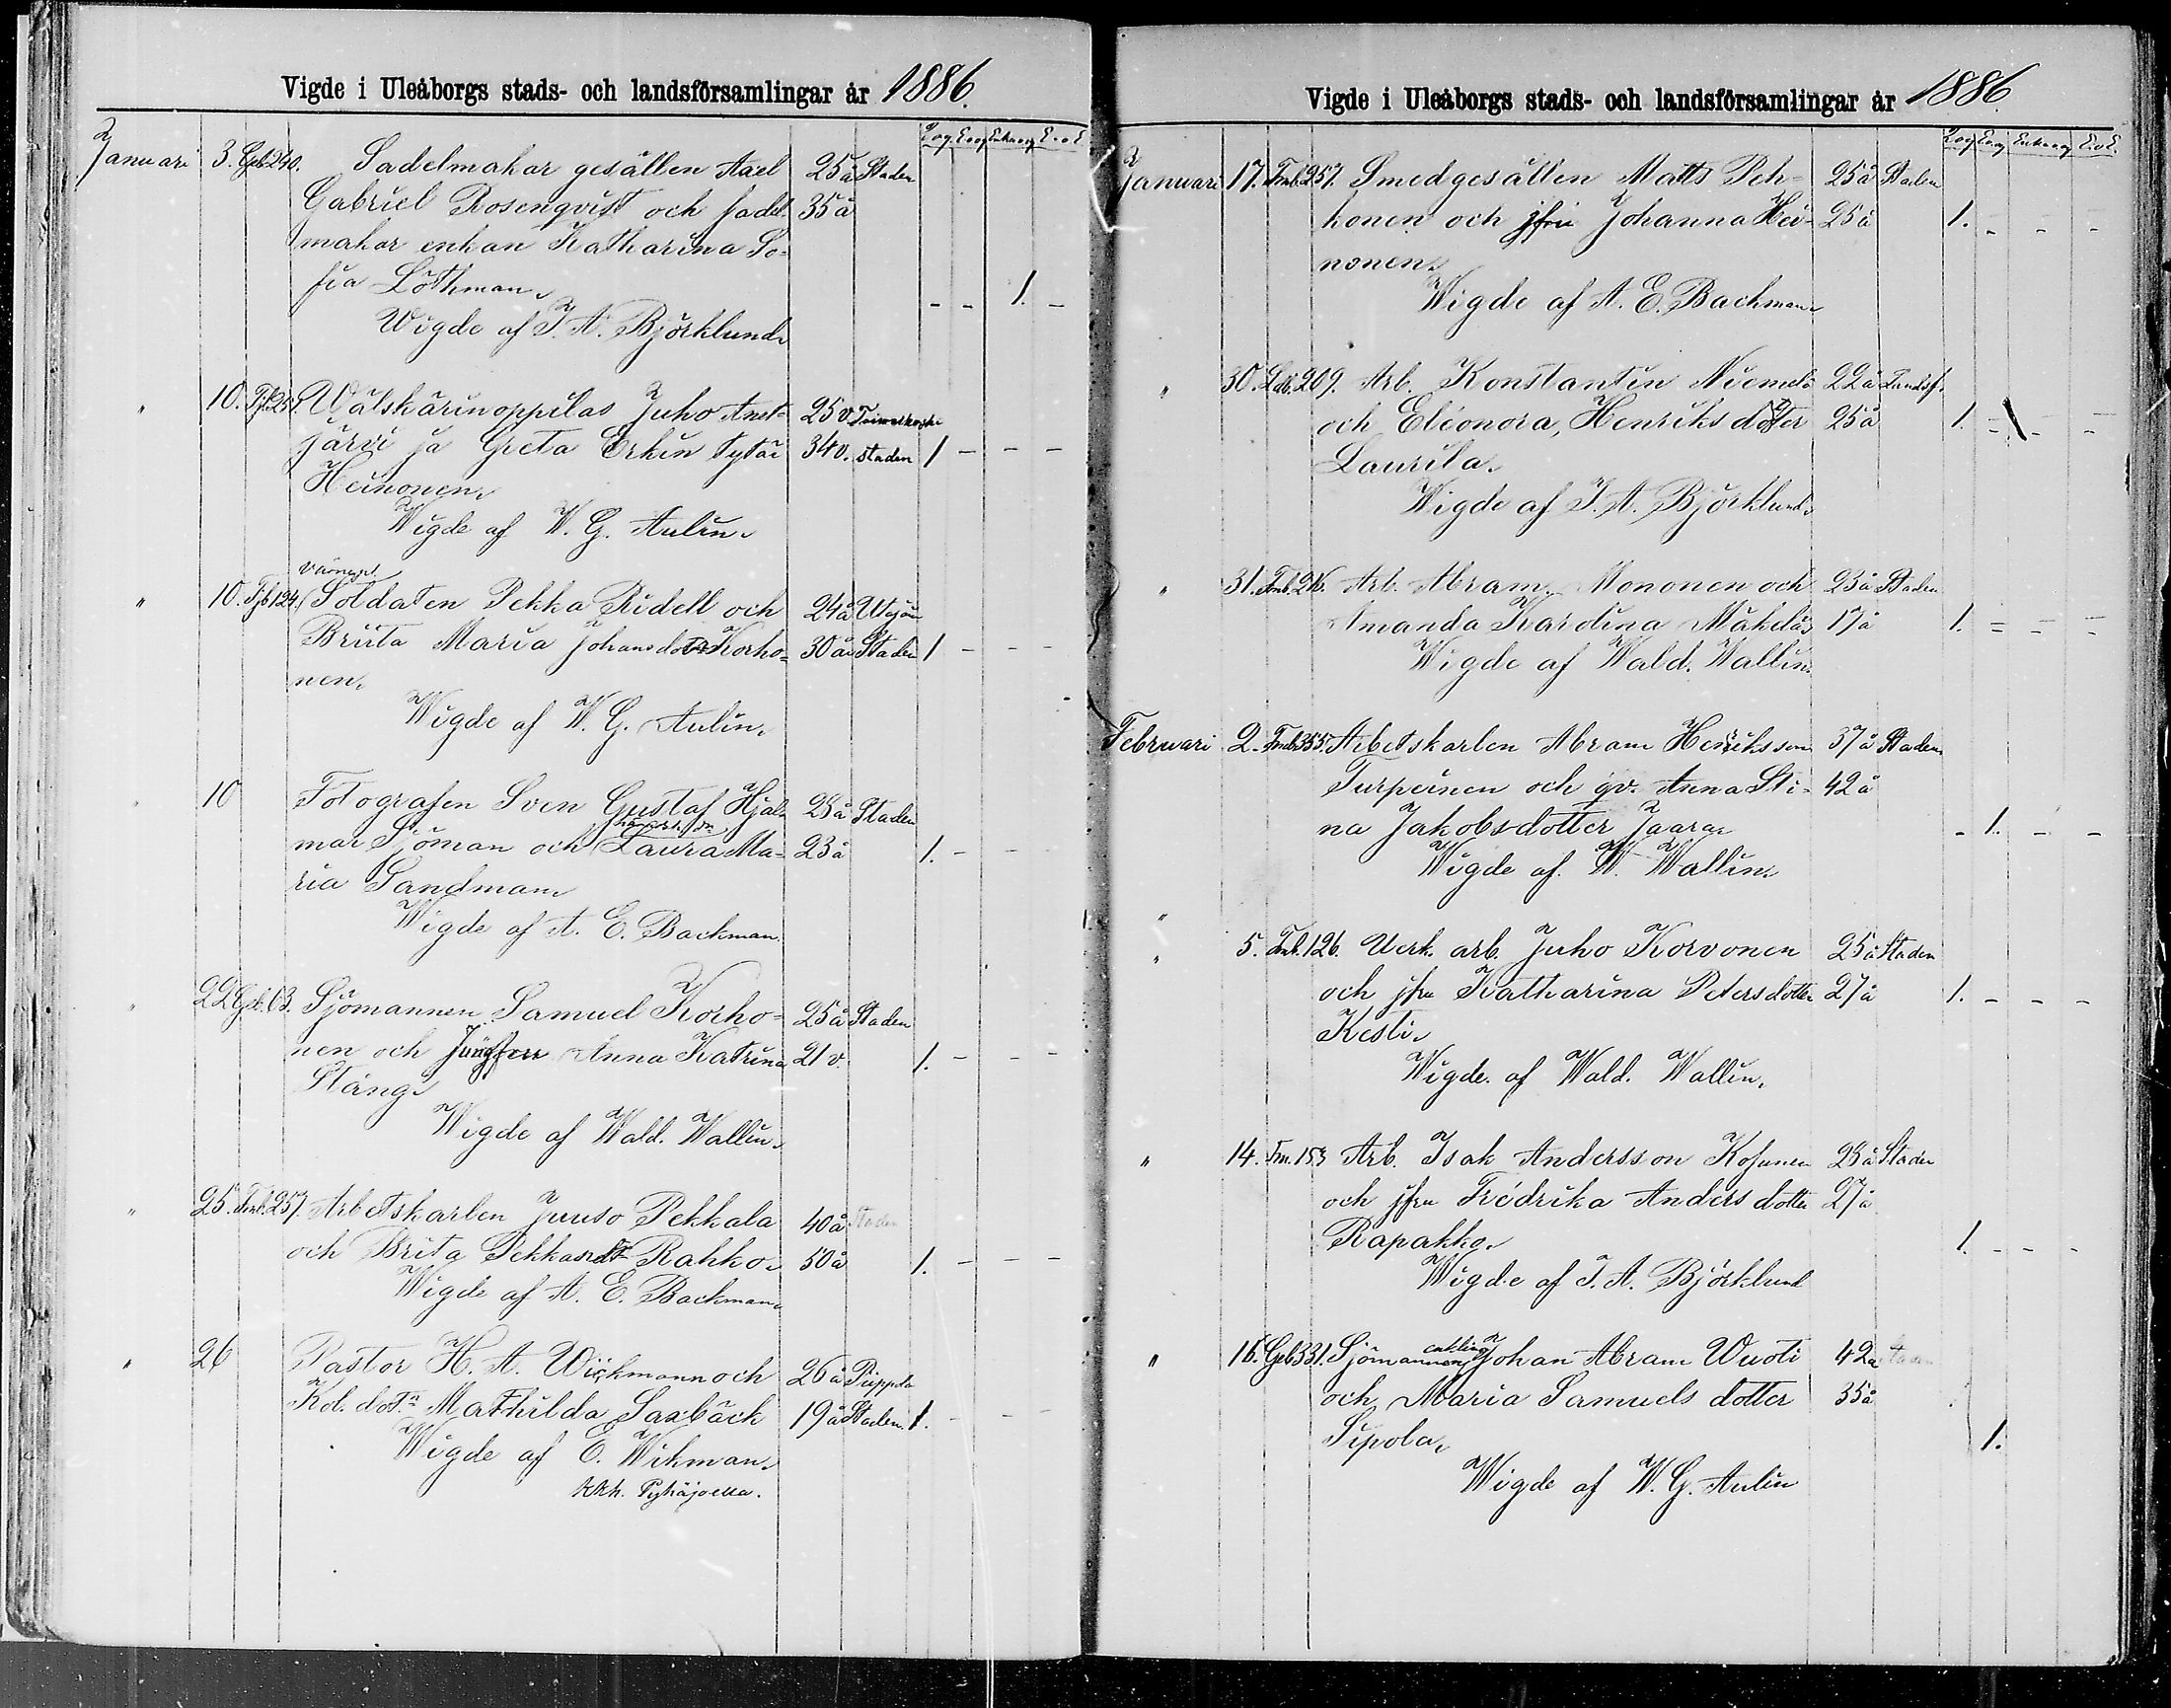 Vigde i Uleåborgs stads- och landsförsamlingar år 1886.
Januari 3. Geb. 240. Sadelmakar gesällen Axel 25 å Staden
Gabriel Rosenqvist och sadel- 35 å
makar enkan Katharina So-
fia Löthman. - - 1. -
Wigde af I. A. Björklund.
" 10. Wälskärinoppilas Juho Anet- 25 v.
järvi ja Greta Erkin tytär 34 v. staden 1 - - -
Heinonen.
Wigde af W. G. Aulin.
värnepl.
" 10. Fjb 124. Soldaten Pekka Ridell och 24 å
Briita Maria Johansdotter Korho- 30 år Staden 1 - - -
nen.
Wigde af W. G. Aulin.
" 10 Fotografen Sven Gustaf Hjal- 28 å Staden
mar Sjöman och Laura Ma- 23 å 1. - - -
ria Sandman
Wigde af A. E. Backman.
" 22 Geb. 63. Sjömannen Samuel Korho- 25 å Staden
nen och Jungfrur Anna Katrina 21 v. 1. - - -
Stäng.
Wigde af Wald. Wallin.
" 25. Fmb. 257. Arbetskarlen Juuso Pekkala 40 å Staden
och Brita Pekkasdr Rahko. 50 å 1. - - -
Wigde af A. E. Backman.
" 26 Pastor H. A. Wickmann och 26 å Piippola
Kol. dotr Mathilda Saxbäck 19 å Staden. 1. - - -
Wigde af E. Wikman.
kkh. Pyhäjoella.
Vigde i Uleåborgs stads- och landsförsamlingar år 1886.
Januari 17. Fmb. 257. Smedgesällen Matts Peh- 25 å Staden
konen och jfru Johanna Hei- 25 å 1. - - -
nonen.
Wigde af A. E. Backman
" 30. Ldb. 209. Arb. Konstantin Niemelä 22 å Landsf.
och Eleonora, Henriksdotter 25 å 1. - - -
Laurila.
Wigde af I. A. Björklund.
" 31. Fmb. 216. Arb. Abram Mononen och 23 å Staden
Amanda Karolina Mäkelä 17 å 1. - - -
Wigde af Wald. Wallin.
Februari 2. Fmb. 355. Arbetskarlen Abram Henriksson 37 å Staden
Turpeinen och qv. Anna Sti- 42 å
na Jakobsdotter Jaara - 1. - -
Wigde af W. Wallin.
" 5. Fmb. 126. Verk. arb. Juho Korvonen 25 å Staden
och jfru Katharina Petersdotter 27 å 1. - - -
Kesti.
Wigde af Wald. Wallin.
" 14. Fm. 153 Arb. Isak Andersson Kojunen 28 å Staden
och jfru Fredrika Anders dotter 27 å
Rapakko. 1. - - -
Wigde af I. A. Björklund
" 16. Geb 331. Sjömannen enkling Johan Abram Wuoti 42 å Staden
och Maria Samuels dotter 35 å
Sipola. 1.
Wigde af W. G. Aulin